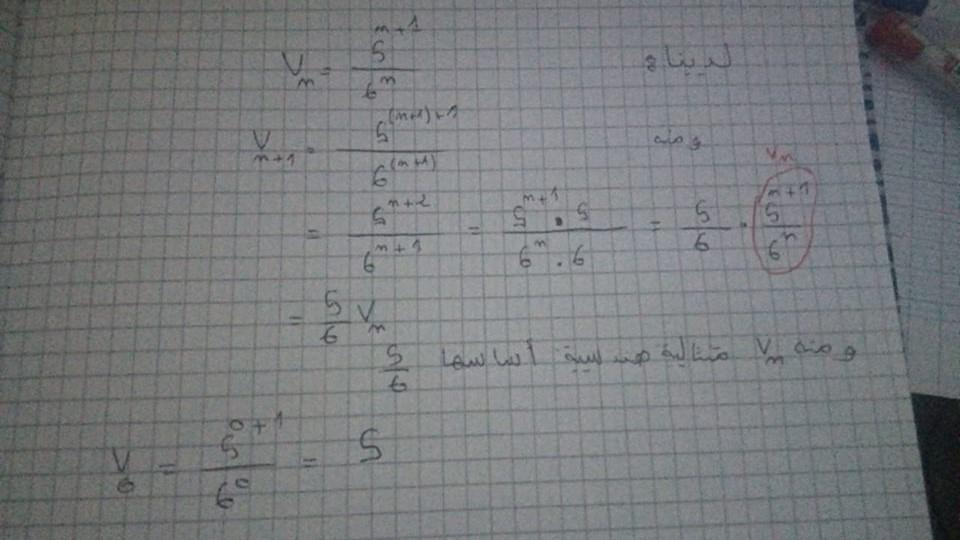 لدينا V_n = 5^{n+1} / 6^n
ومنه V_{n+1} = 5^{(n+1)+1} / 6^{(n+1)}
V_n
= 5^{n+2} / 6^{n+1} = 5^{n+1} · 5 / 6^n · 6 = 5/6 · 5^{n+1} / 6^n
= 5/6 V_n
ومنه V_n متتالية هندسية أساسها 5/6
V_0 = 5^{0+1} / 6^0 = 5